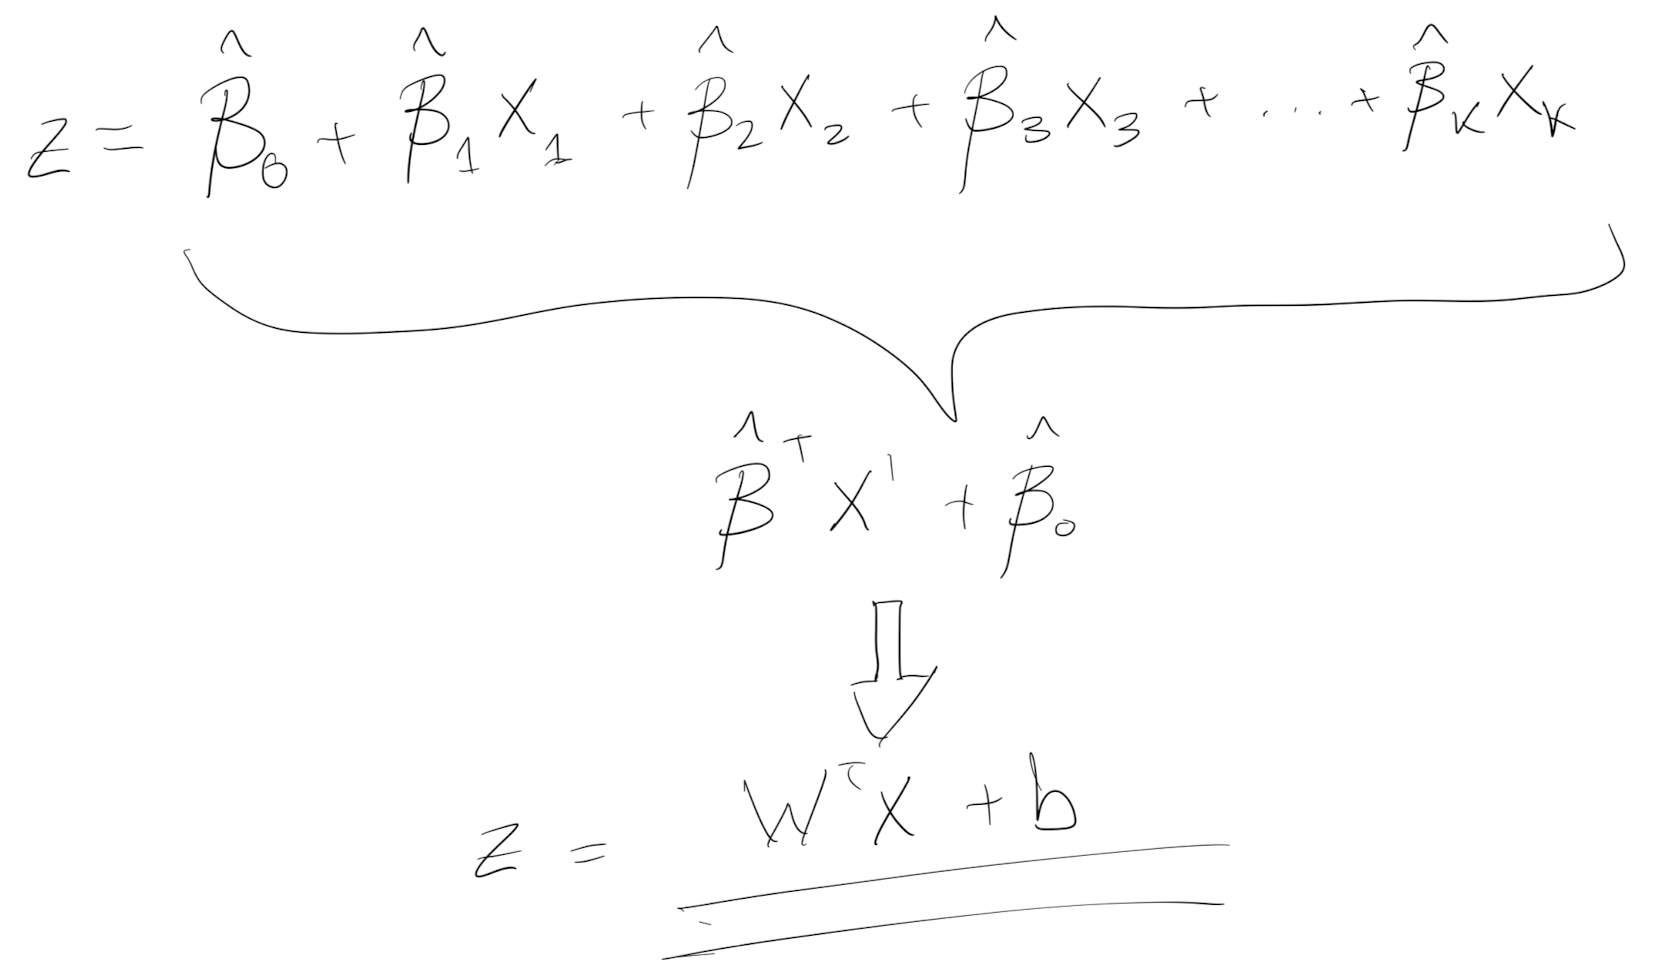 z = β̂₀ + β̂₁X₁ + β̂₂X₂ + β̂₃X₃ + ... + β̂ₖXₖ
β̂ᵀX' + β̂₀
z = WᵀX + b